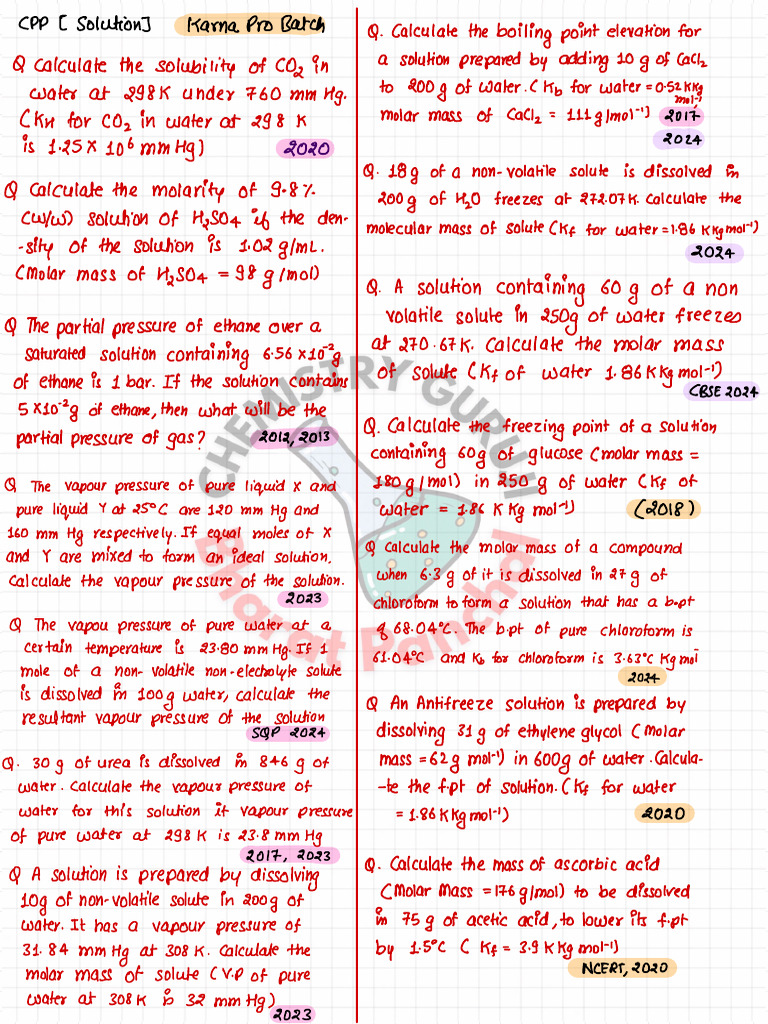 CPP [ Solution] Karna Pro Batch
Q Calculate the solubility of CO₂ in
water at 298K under 760 mm Hg.
(KH for CO₂ in water at 298 K
is 1.25 × 10⁶ mm Hg) 2020
Q Calculate the molarity of 9.8%
(w/w) solution of H₂SO4 if the den-
-sity of the solution is 1.02 g/mL.
(Molar mass of H₂SO4 = 98 g/mol)
Q The partial pressure of ethane over a
saturated solution containing 6.56 ×10⁻²g
of ethane is 1 bar. If the solution contains
5 ×10⁻²g of ethane, then what will be the
partial pressure of gas? 2012, 2013
Q The vapour pressure of pure liquid X and
pure liquid Y at 25°C are 120 mm Hg and
160 mm Hg respectively. If equal moles of X
and Y are mixed to form an ideal solution.
Calculate the vapour pressure of the solution.
2023
Q The vapou pressure of pure water at a
certain temperature is 23.80 mm Hg. If 1
mole of a non-volatile non-electrolyte solute
is dissolved in 100g water, calculate the
resultant vapour pressure of the solution
SQP 2024
Q. 30 g of urea is dissolved in 846 g of
water. Calculate the vapour pressure of
water for this solution if vapour pressure
of pure water at 298 K is 23.8 mm Hg
2017, 2023
Q A solution is prepared by dissolving
10g of non-volatile solute in 200g of
water. It has a vapour pressure of
31.84 mm Hg at 308 K. Calculate the
molar mass of solute (V.P of pure
water at 308K is 32 mm Hg)
2023
Q. Calculate the boiling point elevation for
a solution prepared by adding 10 g of CaCl₂
to 200 g of water. (Kb for water = 0.52 K Kg
mol⁻¹
molar mass of CaCl₂ = 111 g/mol⁻¹) 2017
2024
Q. 18 g of a non-volatile solute is dissolved in
200g of H₂O freezes at 272.07K. Calculate the
molecular mass of solute (Kf for water = 1.86 K Kg mol⁻¹)
2024
Q. A solution containing 60 g of a non
volatile solute in 250g of water freezes
at 270.67K. Calculate the molar mass
of solute (Kf of water 1.86 K Kg mol⁻¹)
CBSE 2024
Q. Calculate the freezing point of a solution
containing 60g of glucose (molar mass =
180 g/mol) in 250 g of water (Kf of
water = 1.86 K Kg mol⁻¹) (2018)
Q Calculate the molar mass of a compound
when 6.3 g of it is dissolved in 27 g of
chloroform to form a solution that has a b.pt
of 68.04°C. The b.pt of pure chloroform is
61.04°C and Kb for chloroform is 3.63°C Kg mol⁻
2024
Q An Antifreeze solution is prepared by
dissolving 31 g of ethylene glycol (Molar
mass = 62 g mol⁻¹) in 600g of water. Calcula-
-te the f.pt of solution. (Kf for water
= 1.86 K Kg mol⁻¹) 2020
Q. Calculate the mass of ascorbic acid
(Molar Mass = 176 g/mol) to be dissolved
in 75 g of acetic acid, to lower its f.pt
by 1.5°C ( Kf = 3.9 K Kg mol⁻¹)
NCERT, 2020
CHEMISTRY GURUJI
Bharat Panchal